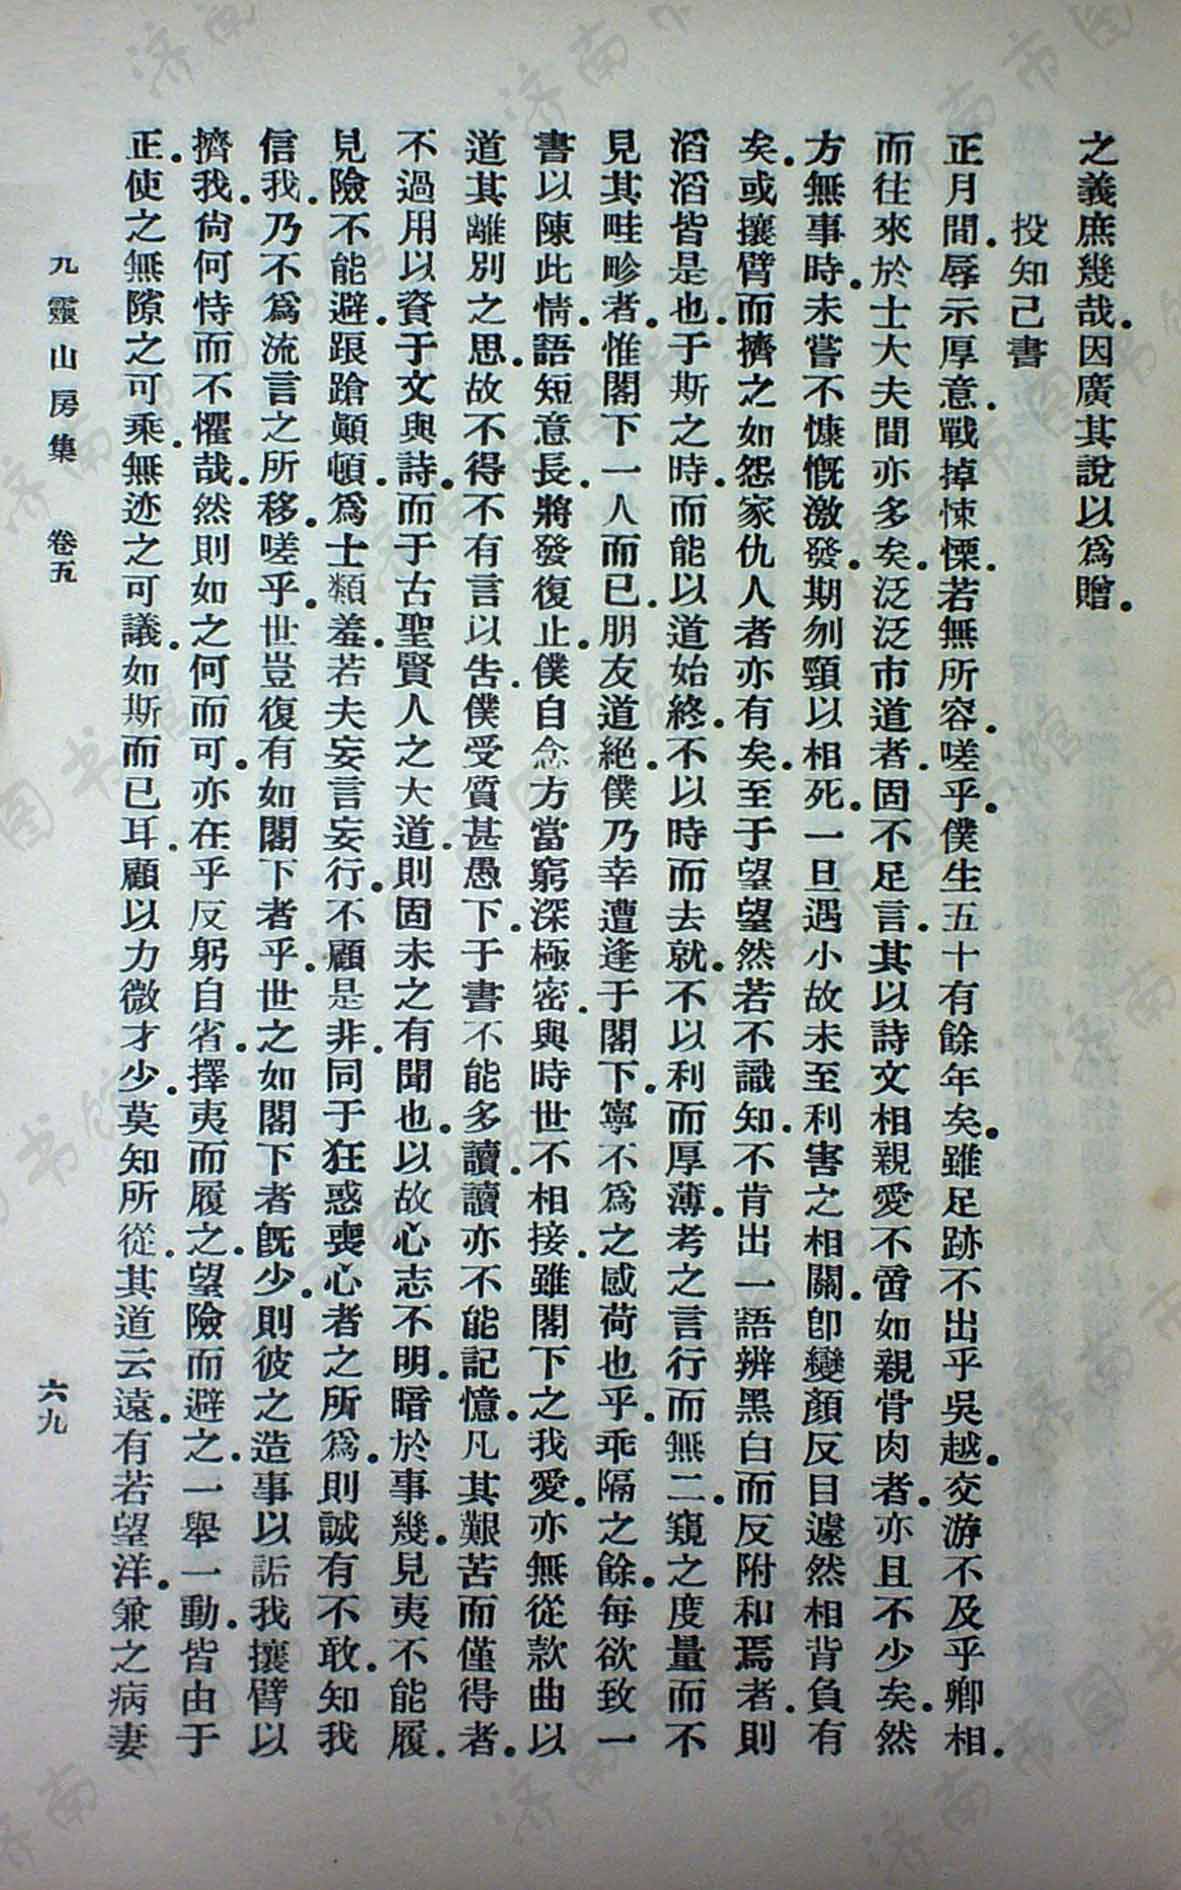 之義庶幾哉。因廣其說以爲贈。
投知己書
正月間。辱示厚意。戰掉悚慄。若無所容。嗟乎。僕生五十有餘年矣。雖足跡不出乎吳越。交游不及乎卿相。
而往來於士大夫間亦多矣。泛泛市道者。固不足言。其以詩文相親愛不啻如親骨肉者。亦且不少矣。然
方無事時。未嘗不慷慨激發。期刎頸以相死。一旦遇小故未至利害之相關。卽變顏反目遽然相背負有
矣。或攘臂而擠之如怨家仇人者亦有矣。至于望望然若不識知。不肯出一語辨黑白而反附和焉者。則
滔滔皆是也。于斯之時。而能以道始終。不以時而去就。不以利而厚薄。考之言行而無二。窺之度量而不
見其畦畛者。惟閣下一人而已。朋友道絕。僕乃幸遭逢于閣下。寧不爲之感荷也乎。乖隔之餘。每欲致一
書以陳此情。語短意長。將發復止。僕自念方當窮深極密。與時世不相接。雖閣下之我愛。亦無從款曲以
道其離別之思。故不得不有言以吿。僕受質甚愚下。于書不能多讀。讀亦不能記憶。凡其艱苦而僅得者。
不過用以資于文與詩。而于古聖賢人之大道。則固未之有聞也。以故心志不明。暗於事幾。見夷不能履。
見險不能避。踉蹌顚頓。爲士類羞。若夫妄言妄行。不顧是非。同于狂惑喪心者之所爲。則誠有不敢。知我
信我。乃不爲流言之所移。嗟乎。世豈復有如閣下者乎。世之如閣下者旣少。則彼之造事以詬我攘臂以
擠我。尙何恃而不懼哉。然則如之何而可。亦在乎反躬自省。擇夷而履之。望險而避之。一舉一動。皆由于
正。使之無隙之可乘。無迹之可議。如斯而已耳。顧以力微才少。莫知所從。其道云遠。有若望洋。兼之病妻
九靈山房集　卷五
六九